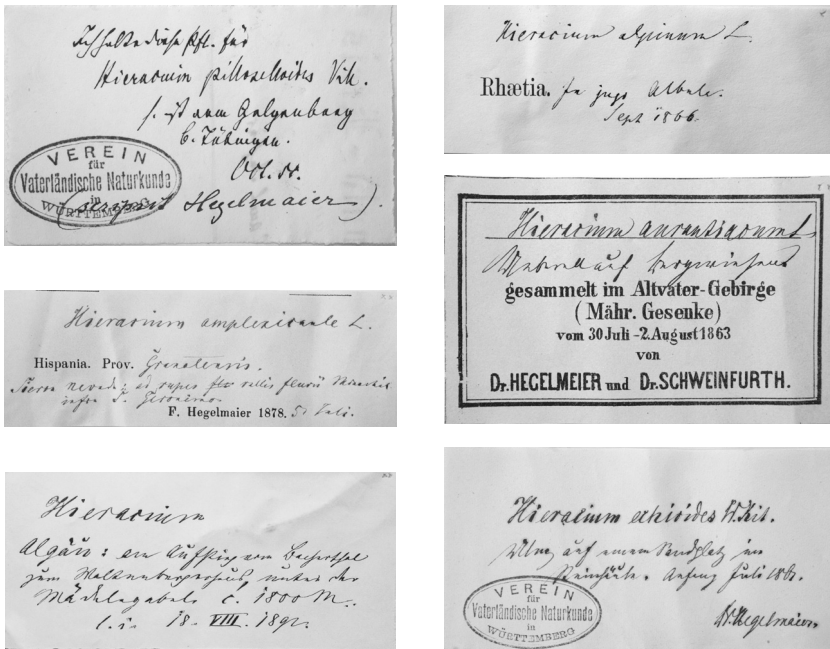 Ich halte diese Pfl. für
Hieracium pilloselloides Vill.
s. ist vom Galgenberg
b. Tübingen.
Oct.
VEREIN
für
Vaterländische Naturkunde
in
WÜRTTEMBERG
Hegelmaier).
Hieracium amplexicaule L.
Hispania. Prov. Granatensis.
Sierra nevada: ad rupes vallis fluvii Monachil
infra S. Geronimo
F. Hegelmaier 1878. 5. Juli.
Hieracium
Algäu: am Aufstieg vom Bacherthal
zum Waltenbergerhaus unter der
Mädelegabel c. 1800 M.
18. VIII.
Hieracium alpinum L.
Rhætia. In jugo Albula.
Sept 1866.
Hieracium aurantiacum L.
Ueberall auf Bergwiesen
gesammelt im Altvater-Gebirge
(Mähr. Gesenke)
vom 30 Juli - 2. August 1863
von
Dr. HEGELMEIER und Dr. SCHWEINFURTH.
Hieracium echioides W. Kit.
Ulm, auf einem Sandplatz im
Steinhäule. Anfang Juli
VEREIN
für
Vaterländische Naturkunde
in
WÜRTTEMBERG
Hegelmaier